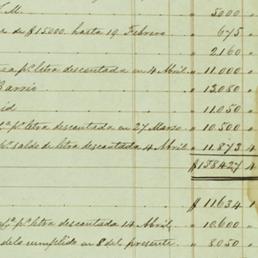 S. M. " 5000 "
de $15000. hasta 19 Febrero " 675
" 2.160 "
pª letra descontada en 4 Abril " 11.000 "
Barrio " 13.080
id " 11.050
pª letra descontada en 27 Marzo " 10.500 "
pª saldo de letra descontada 4 Abril " 11.873 4
$138.427 4
$ 11.634 1
pª letra descontada 14 Abril " 10.600
cumplido en 8 del presente " 8050